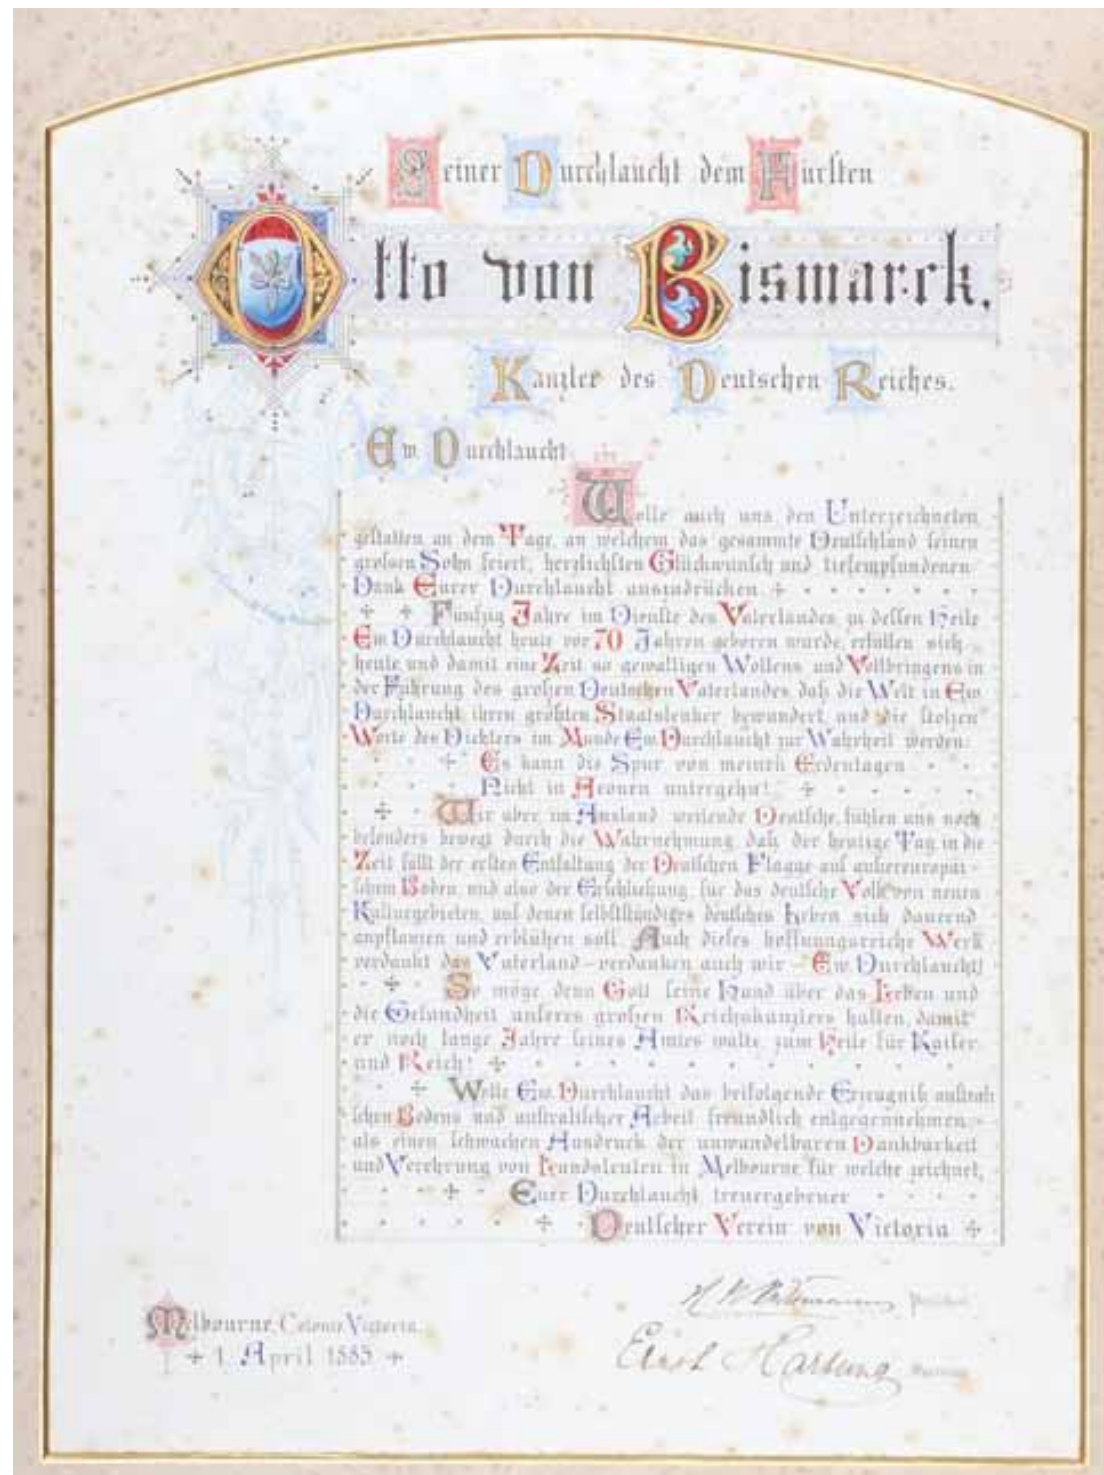 Seiner Durchlaucht dem Fürsten
Otto von Bismarck.
Kanzler des Deutschen Reiches.
Ew. Durchlaucht
Wolle auch uns den Unterzeichneten,
gestatten an dem Tage, an welchem das gesammte Deutschland seinen
grossen Sohn feiert, herzlichsten Glückwunsch und tiefempfundenen
Dank Eurer Durchlaucht auszudrücken
Fünfzig Jahre im Dienste des Vaterlandes, zu dessen Heile
Ew Durchlaucht heute vor 70 Jahren geboren wurde, erfüllen sich
heute und damit eine Zeit so gewaltigen Wollens und Vollbringens in
der Führung des großen Deutschen Vaterlandes, daß die Welt in Ew
Durchlaucht ihren größten Staatslenker bewundert, und die stolzen
Worte des Dichters im Munde Ew. Durchlaucht zur Wahrheit werden:
Es kann die Spur von meinen Erdentagen
Nicht in Aeonen untergehn!
Wir aber im Ausland weilende Deutsche, fühlen uns noch
besonders bewegt durch die Wahrnehmung, daß der heutige Tag in die
Zeit fällt der ersten Entfaltung der Deutschen Flagge auf außereuropäi-
schem Boden, und also der Erschließung, für das deutsche Volk von neuen
Kulturgebieten, auf denen selbstständiges deutsches Leben sich dauernd
anpflanzen und erblühen soll. Auch dieses hoffnungsreiche Werk
verdankt das Vaterland – verdanken auch wir – Ew. Durchlaucht!
So möge denn Gott seine Hand über das Leben und
die Gesundheit unseres großen Reichskanzlers halten, damit
er noch lange Jahre seines Amtes walte, zum Heile für Kaiser
und Reich!
Wolle Ew. Durchlaucht das beifolgende Erzeugniß australi-
schen Bodens und australischer Arbeit freundlich entgegennehmen,
als einen schwachen Ausdruck der unwandelbaren Dankbarkeit
und Verehrung von Landsleuten in Melbourne für welche zeichnet,
Euer Durchlaucht treuergebener
Deutscher Verein von Victoria
Melbourne, Colonie Victoria.
1. April 1885
Hartung